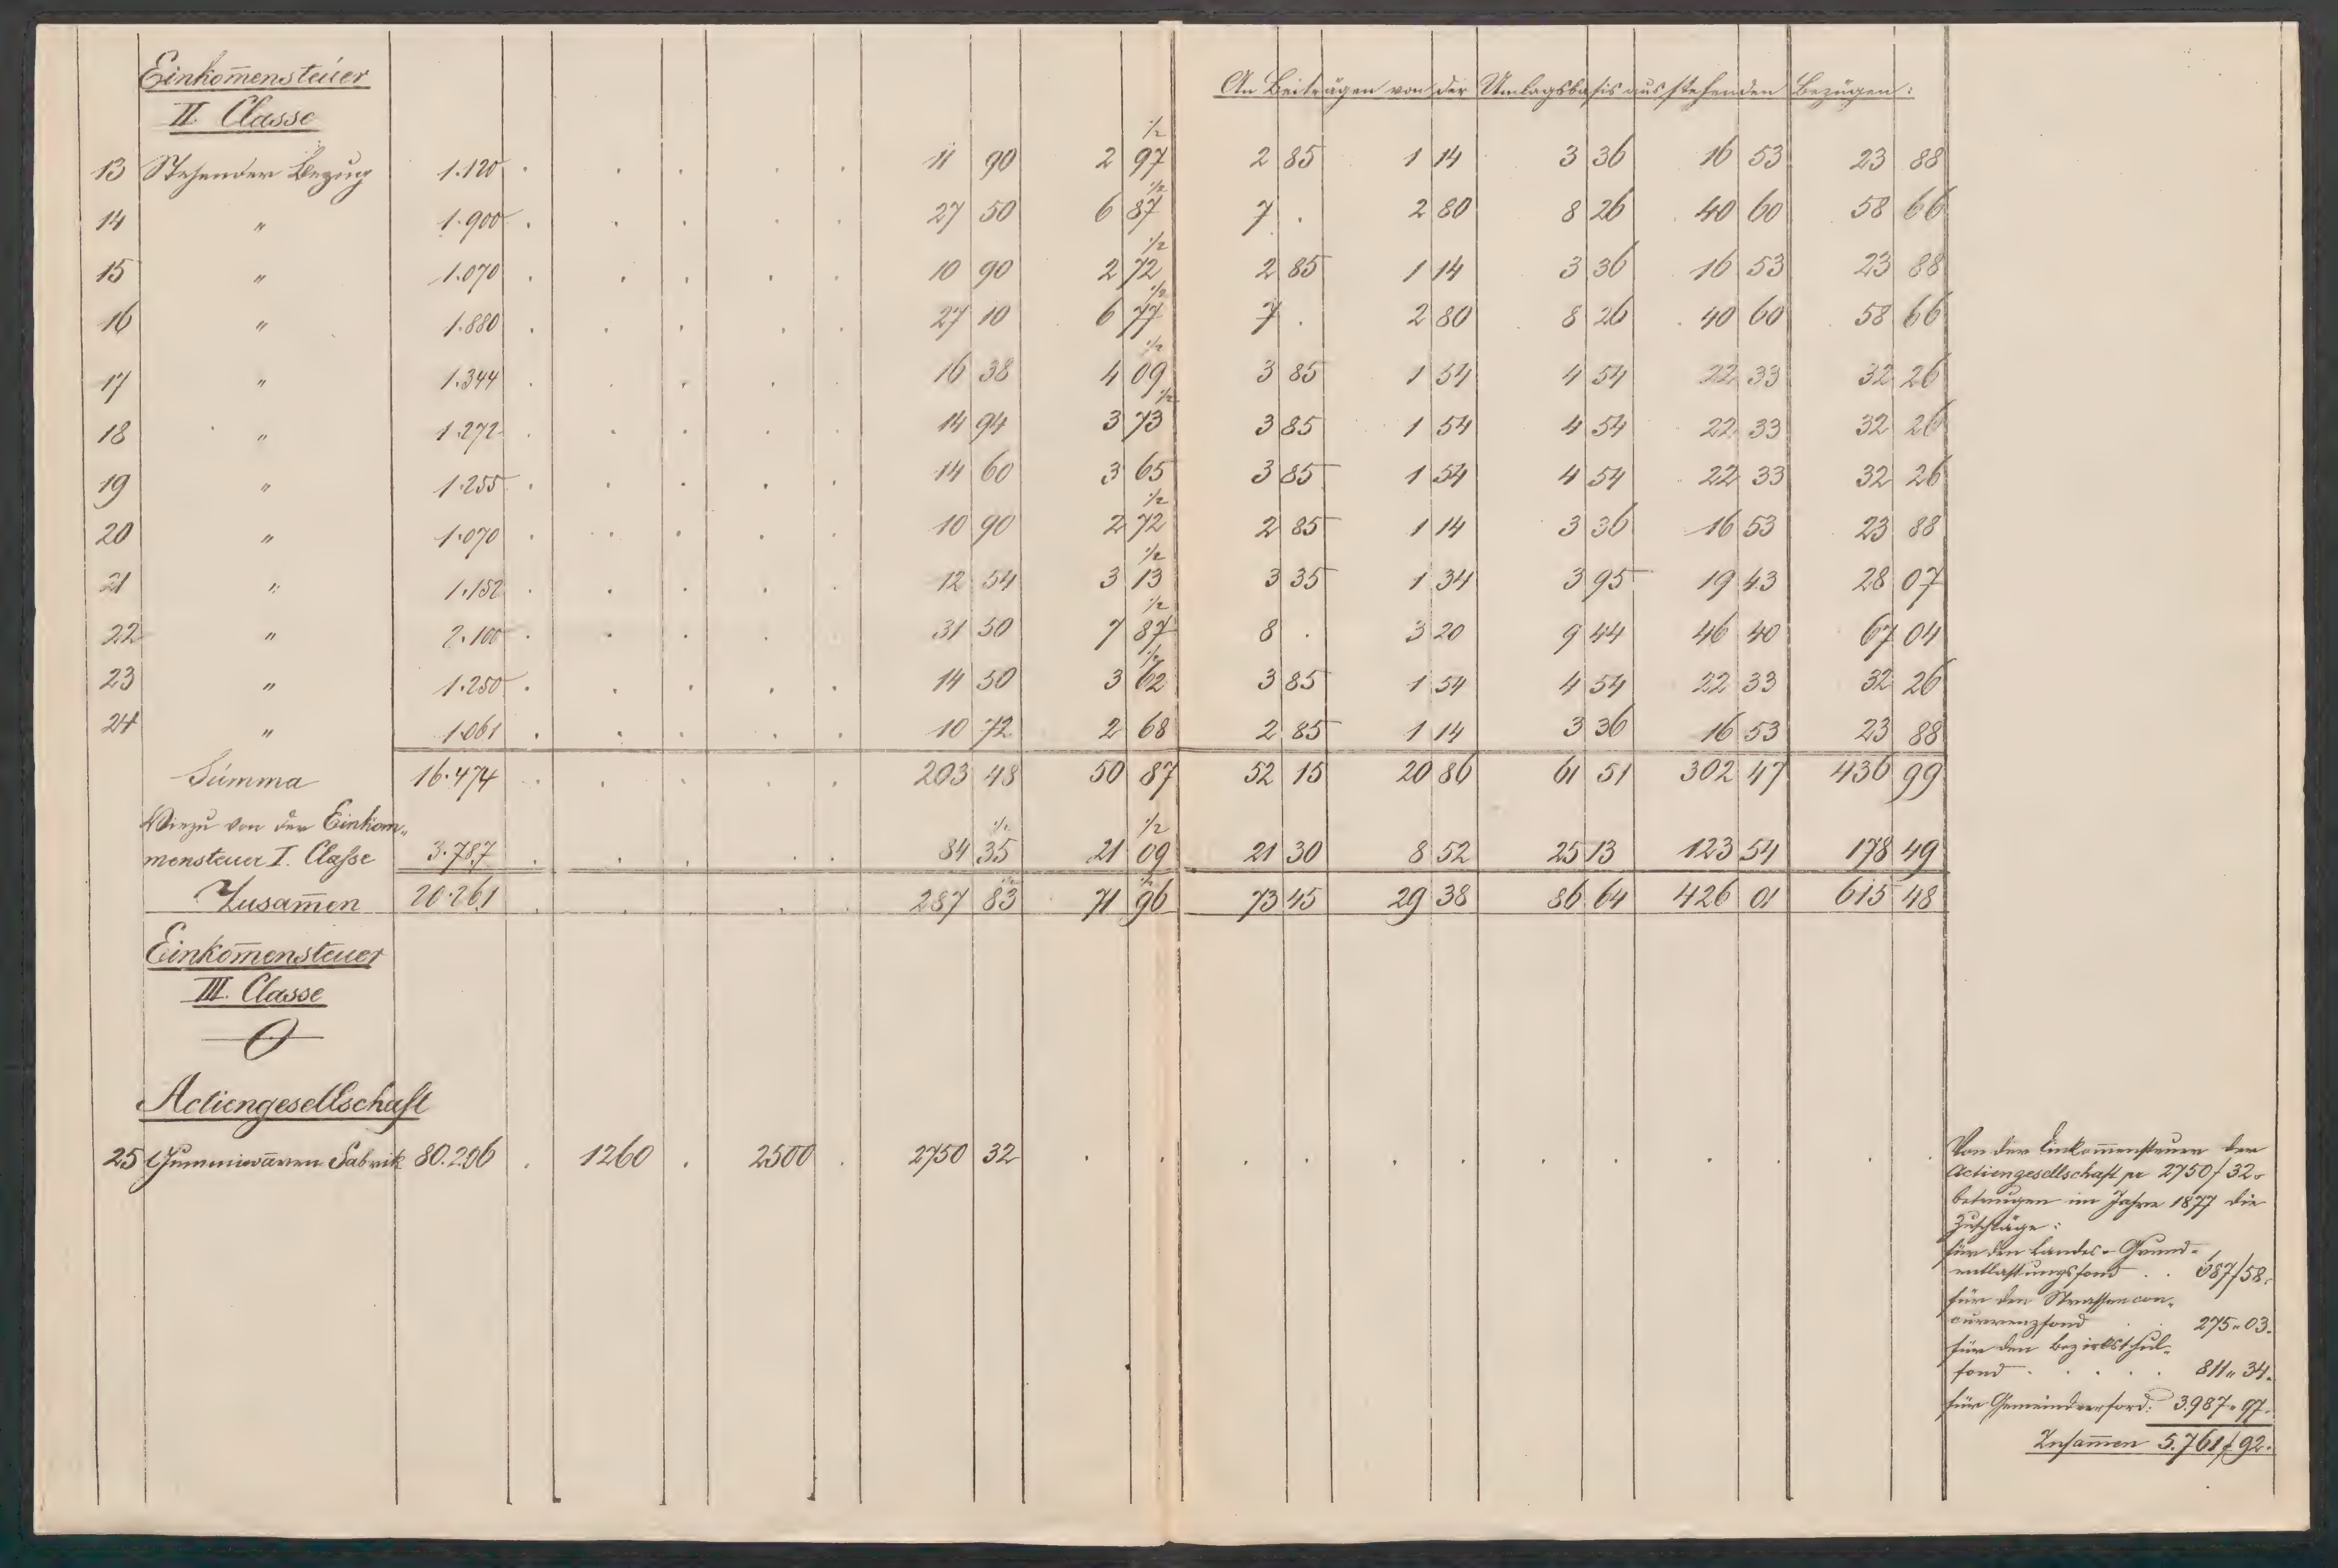 Einkom̄ensteuer
II. Classe
An Beiträgen von der Umlagsbasis aus stehenden Bezügen:
13 Stehender Bezug 1.120 . . . . . 11 90 2 97 ½ 2 85 1 14 3 36 16 53 23 88
14 " 1.900 . . . . . 27 50 6 87 ½ 7 . 2 80 8 26 40 60 58 66
15 " 1.070 . . . . . 10 90 2 72 ½ 2 85 1 14 3 36 16 53 23 88
16 " 1.880 . . . . . 27 10 6 77 ½ 7 . 2 80 8 26 40 60 58 66
17 " 1.344 . . . . 16 38 4 09 ½ 3 85 1 54 4 54 22 33 32 26
18 " 1.272 . . . . . 14 94 3 73 ½ 3 85 1 54 4 54 22 33 32 26
19 " 1.255 . . . . . 14 60 3 65 3 85 1 54 4 54 22 33 32 26
20 " 1.070 . . . . . 10 90 2 72 ½ 2 85 1 14 3 36 16 53 23 88
21 " 1.152 . . . . . 12 54 3 13 ½ 3 35 1 34 3 95 19 43 28 07
22 " 2.100 . . . . 31 50 7 87 ½ 8 . 3 20 9 44 46 40 67 04
23 " 1.250 . . . . . 14 50 3 62 ½ 3 85 1 54 4 54 22 33 32 26
24 " 1.061 . . . . . 10 72 2 68 2 85 1 14 3 36 16 53 23 88
Summa 16.474 . . . . . 203 48 50 87 52 15 20 86 61 51 302 47 436 99
Hiezu von der Einkom„
mensteuer I. Classe 3.787 . . . . . 84 35 ½ 21 09 ½ 21 30 8 52 25 13 123 54 178 49
Zusam̄en 20.261 . . . . . 287 83 ½ 71 96 ½ 73 45 29 38 86 64 426 01 615 48
Einkom̄ensteuer
III. Classe
0
Actiengesellschaft
25 Gummiwaaren Fabrik 80.206 . 1260 . 2500 . 2750 32 . . . . . . . . . . . .
Von der Einkom̄ensteuer der
Actiengesellschaft pr 2750 f 32„
betrugen im Jahre 1877 die
Zuschläge:
für den Landes- Grund-
entlastungsfond . . 687 f 58„
für den Strassencon„
currenzfond . 275„03„
für den Bezirksschul„
fond . . . . 811„34„
für Gemeindeerford: 3.987„97„
Zusam̄en 5.761 f 92„